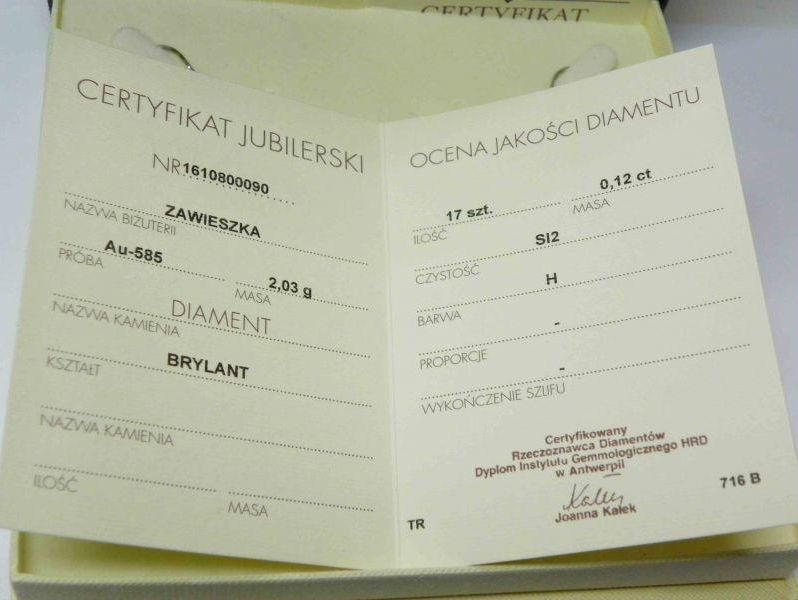 CERTYFIKAT
CERTYFIKAT JUBILERSKI
NR 1610800090
ZAWIESZKA
NAZWA BIŻUTERII
Au-585
PRÓBA
2,03 g
MASA
DIAMENT
NAZWA KAMIENIA
BRYLANT
KSZTAŁT
NAZWA KAMIENIA
ILOŚĆ
MASA
OCENA JAKOŚCI DIAMENTU
17 szt. 0,12 ct
ILOŚĆ MASA
SI2
CZYSTOŚĆ
H
BARWA
-
PROPORCJE
-
WYKOŃCZENIE SZLIFU
Certyfikowany
Rzeczoznawca Diamentów
Dyplom Instytutu Gemmologicznego HRD
w Antwerpii
Joanna Kałek
716 B
TR